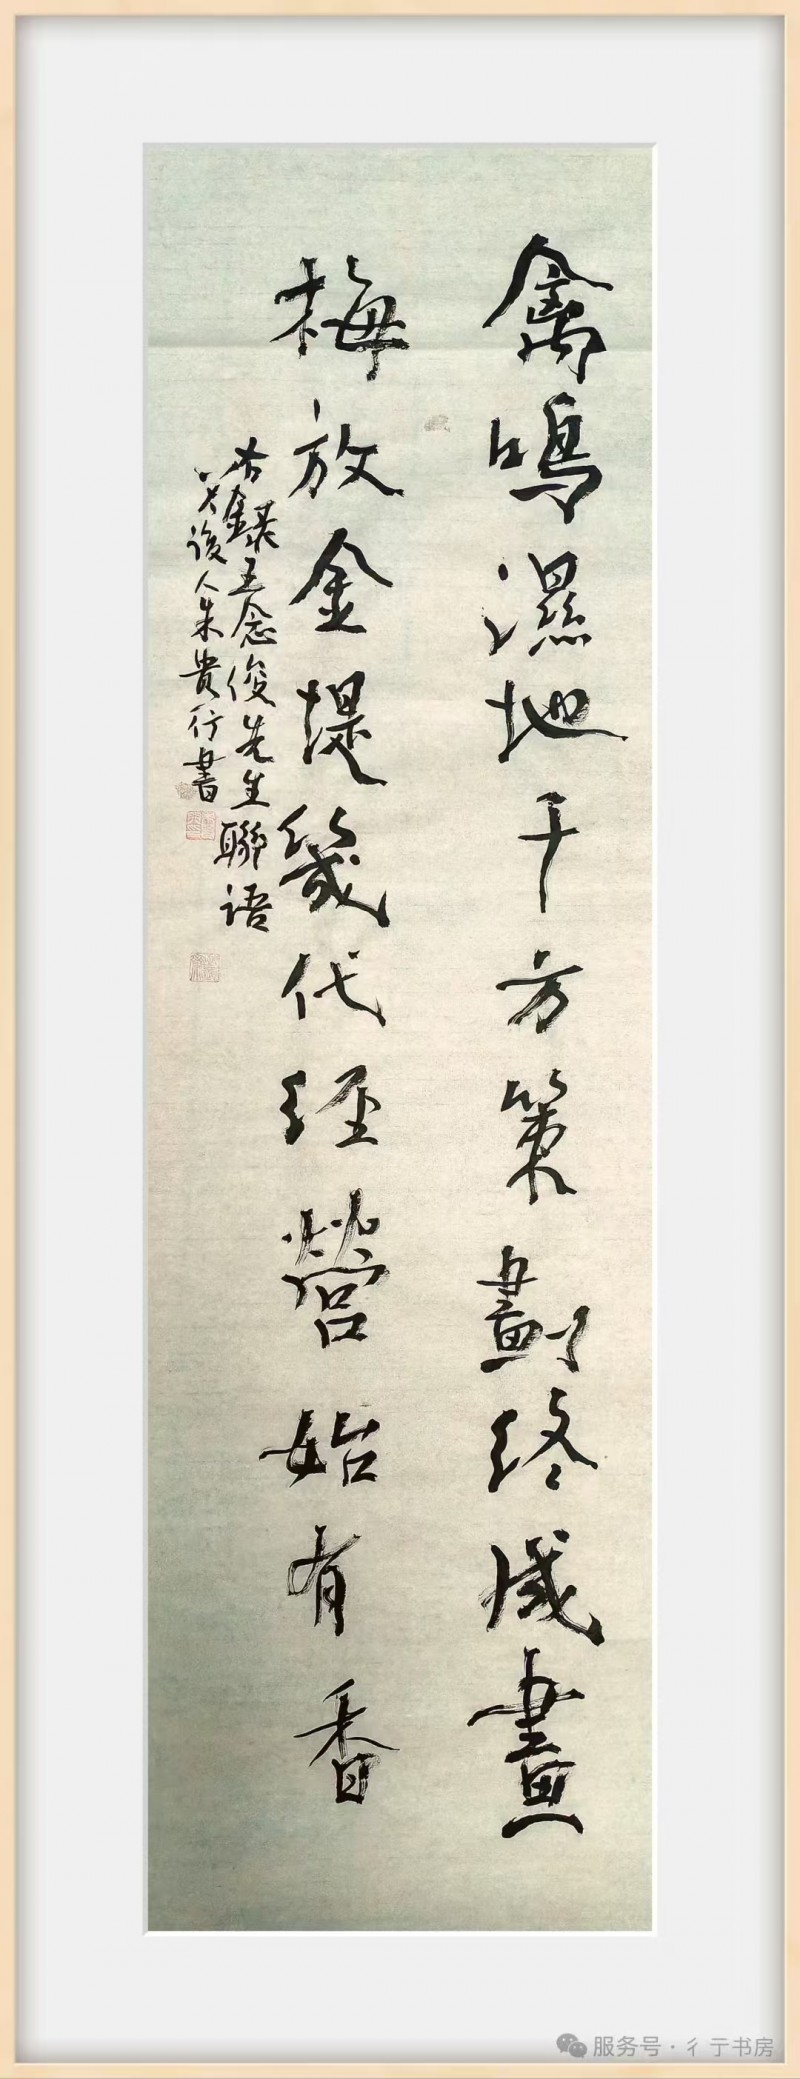 禽鳴濕地千方策劃終成畫
梅放金堤幾代經營始有香
右錄王念俊先生聯語
後人朱貴行書
服务号·彳亍书房